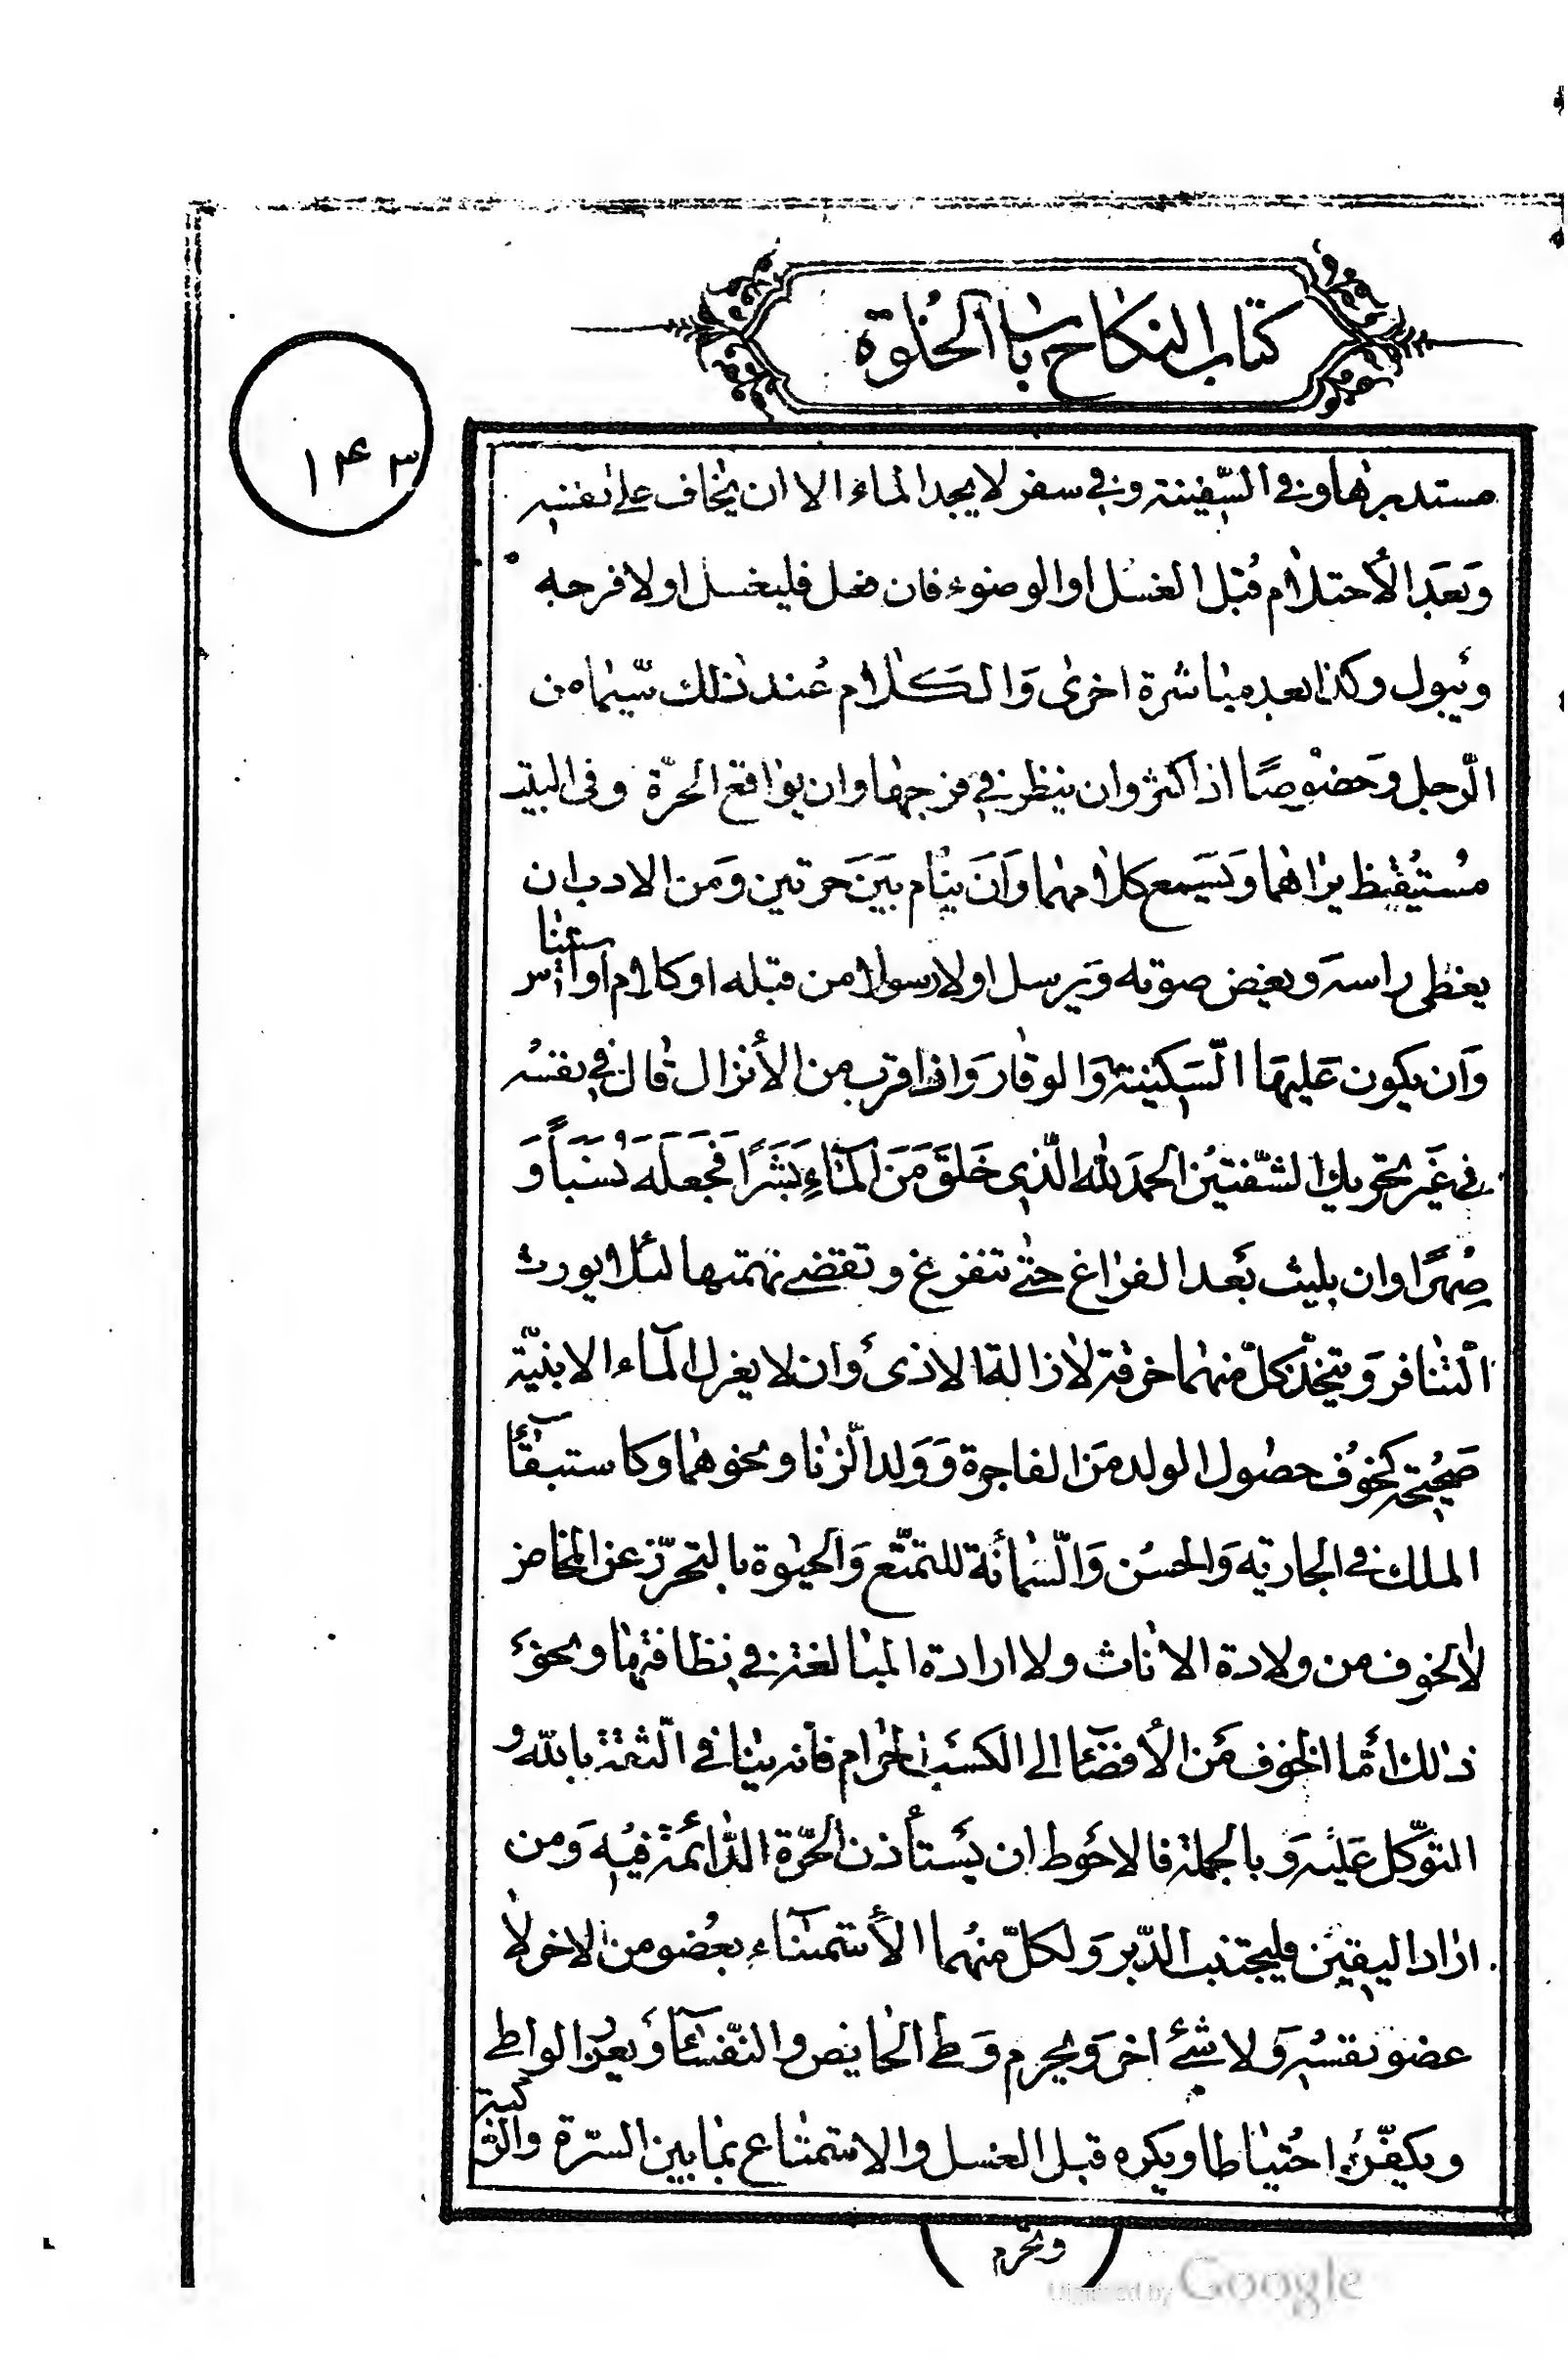 كتاب النكاح باب الخلوة
١۴٣
مستدبرها وفي السّفينة وفي سفر لا يجد الماء الا ان يخاف على نفسه
وَبعَد الأحتلام قُبل الغسل او الوضوء فان فعل فليغسل اولا فرجه
ويبول وكذا بعد مباشرة اخرى وَالكلام عُند ذلك سيّما من
الرّجل وَخصوصًا اذا كثر وان ينظر في فرجها وان يواقع الحرّة وفى البيت
مُستيُقظ يراهما وَيَسمع كلامهما وَاَن ينام بَيَن حرتين وَمن الادب ان
يغطى راسه ويغض صوته وَيرسل اولا رسولا من قبله او كلام او استيناس
وَان يكون عَليهَا السّكينة وَالوقار وَاذا قرب من الأنزال قال في نفسه
في غَير تحريك الشّفتين الحمد لله الّذي خَلقَ مَن اَلمآءِ بَشَرًا فَجعلَه نسَباً وَ
صِهرًا وان يلبث بعَد الفراغ حتّى تنفرغ وتقضى نهمتها لئلا يورث
التّنافر وَيتّخذ كلّ منهما خرقة لازالة الاذى وان لا يعزل المآء الا بنيّة
صَحيحة كخوف حصول الولد مَن الفاجرة وَوَلد الزّنا ونحوهما وكاستبقآء
الملك في الجارية وَالحسُن وَالسّمانة للتمتّع وَالحيوة بالتحرّز عن المخاض
لا لخوف من ولادة الاناث ولا ارادة المبالغة في نظافتها ونحو
ذلك امّا الخوف مَن الأفضآء الى الكسَب الحرام فانه ينافي الثقة بالله و
التوكّل عَليه وَبالجملة فالاحَوط ان يَستأذن الحرّة الدّائمة فيه وَمن
اراد اليقين فليجتنب الدّبر وَلكلّ منهما الأستمتاع بعُضو من الاخر لا
عضو نفسه وَلا شئ اخر وَيحرم وَطى الحايض والنّفسآء وَيعزّر الواطى
ويكفّر احُتياطا ويكره قبل الغسل والاستمتاع بما بين السّرّة والركبة
وتحرم
Digitized by Google